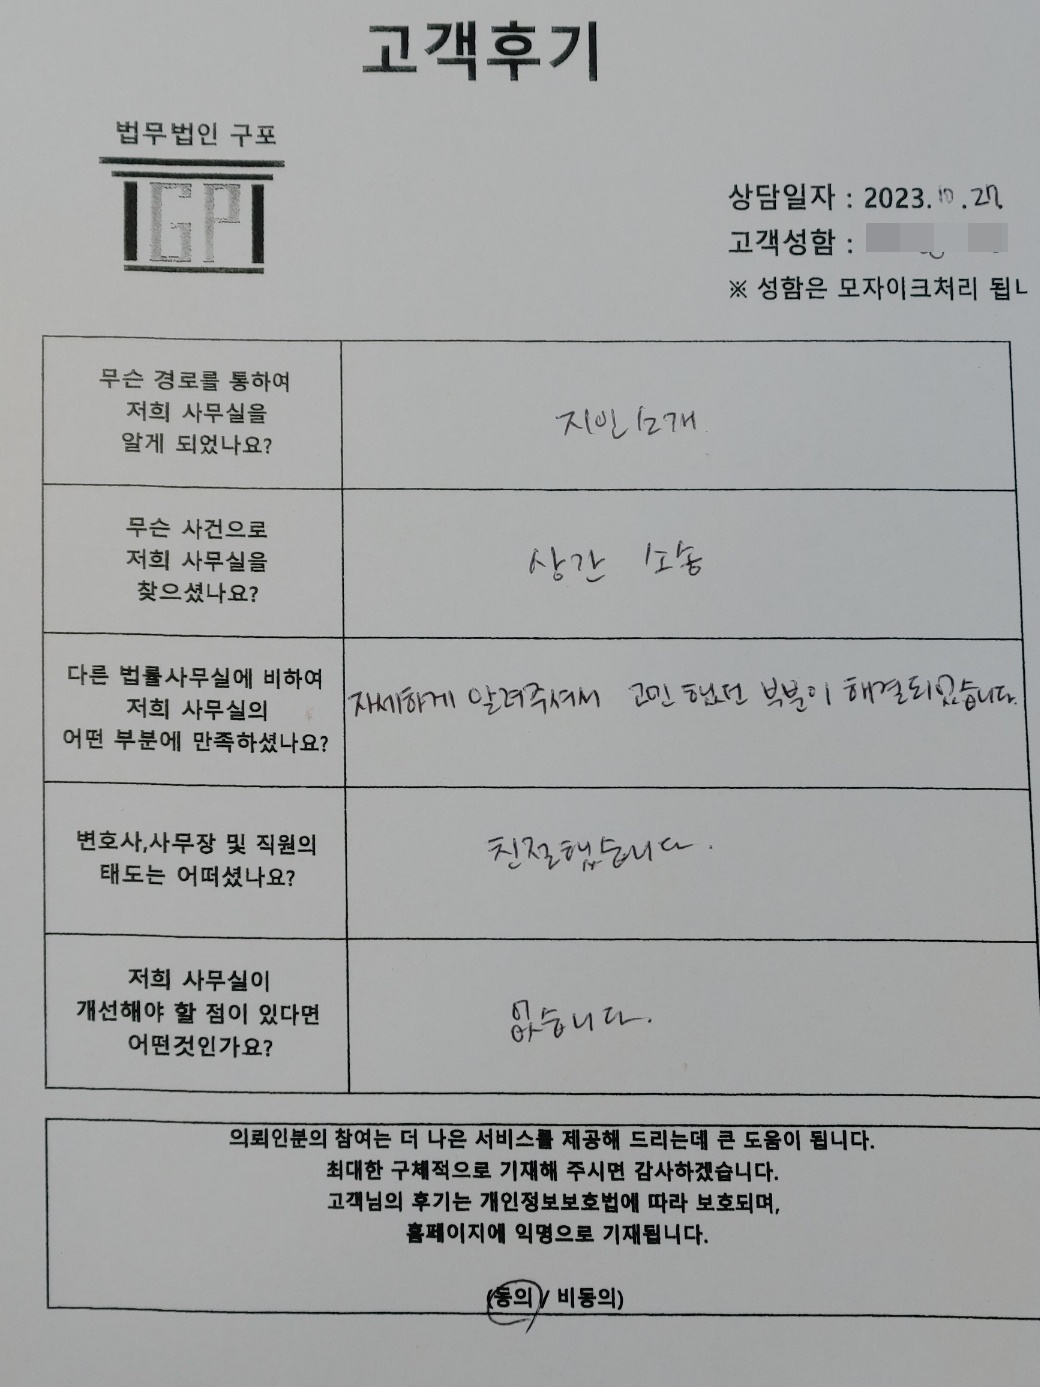 고객후기
법무법인 구포
GP
상담일자 : 2023.10.27.
고객성함 :
※ 성함은 모자이크처리 됩ㄴ
무슨 경로를 통하여
저희 사무실을
알게 되었나요?
지인소개
무슨 사건으로
저희 사무실을
찾으셨나요?
상간 소송
다른 법률사무실에 비하여
저희 사무실의
어떤 부분에 만족하셨나요?
자세하게 알려주셔서 고민했던 부분이 해결되었습니다.
변호사,사무장 및 직원의
태도는 어떠셨나요?
친절했습니다.
저희 사무실이
개선해야 할 점이 있다면
어떤것인가요?
없습니다.
의뢰인분의 참여는 더 나은 서비스를 제공해 드리는데 큰 도움이 됩니다.
최대한 구체적으로 기재해 주시면 감사하겠습니다.
고객님의 후기는 개인정보보호법에 따라 보호되며,
홈페이지에 익명으로 기재됩니다.
(동의 / 비동의)